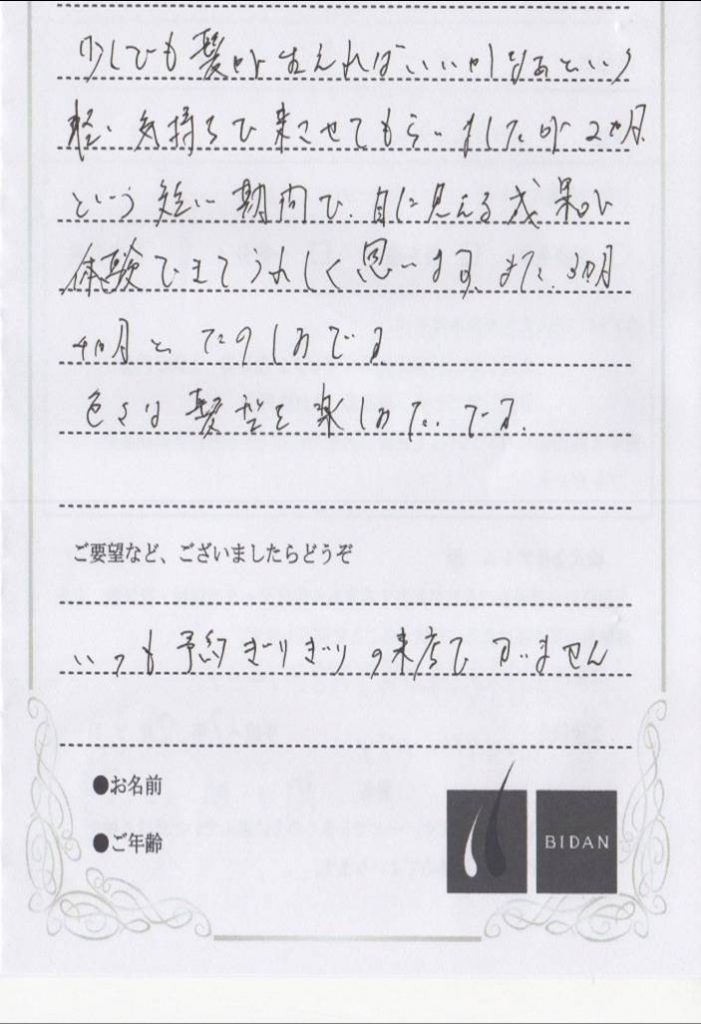 少しでも髪が生えればいいかなあという
軽い気持ちで来させてもらいましたが、2ヵ月
という短い期間で、目に見える成果が
体験できてうれしく思います。また、3ヵ月
4ヵ月と、たのしみです
色々な髪型を楽しみたいでーす。
ご要望など、ございましたらどうぞ
いつも予約ぎりぎりの来店ですいません
●お名前
●ご年齢
BIDAN